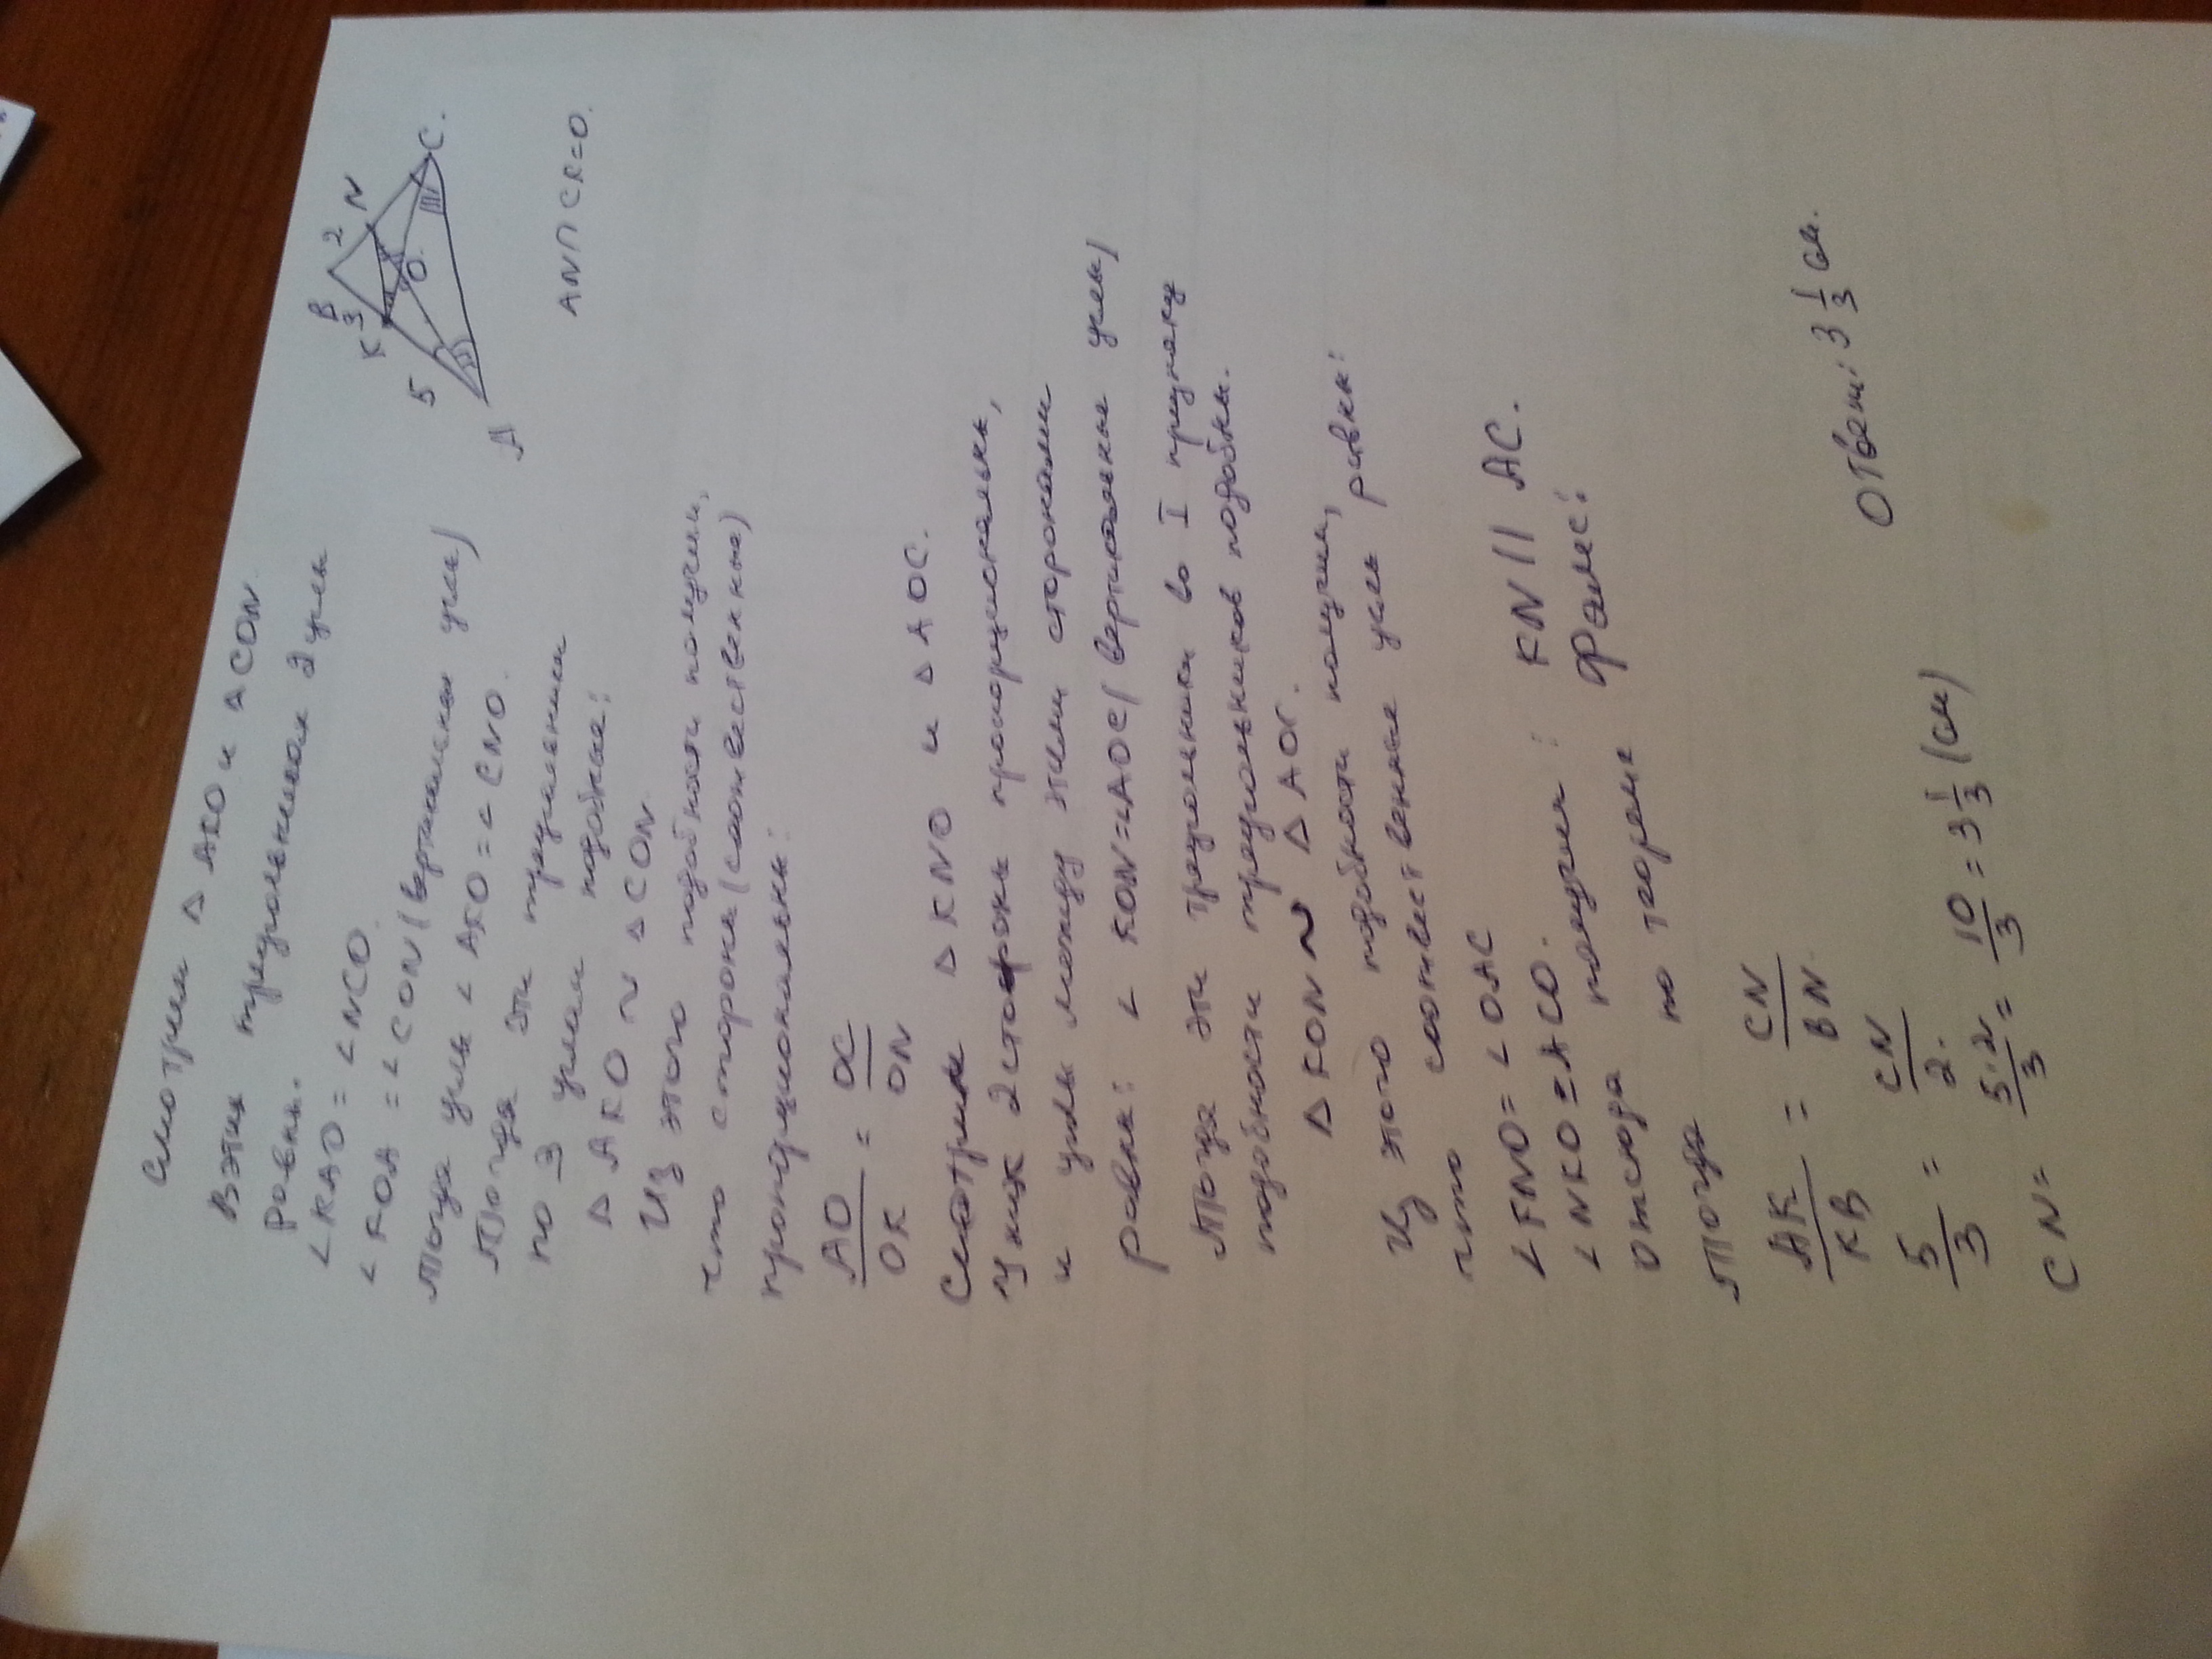 Смотрим △ AKO и △ CON.
В этих треугольниках 2 углы
равны.
∠KAO = ∠NCO.
∠KOA = ∠CON (вертикальны углы)
Тогда углы ∠AKO = ∠CNO.
Тогда эти треугольники
по 3 углам подобные:
△ AKO ~ △ CON
Из этого подобности получим,
что стороны (соответственные)
пропорциональны:
AO/OK = OC/ON
Смотрим △ KNO и △ AOC.
У них 2 стороны пропорциональны,
и углы между этими сторонами
равны: ∠ KON=∠AOC (вертикальные углы)
Тогда эти треугольники во I признаку
подобности треугольников подобны.
△ KON ~ △ AOC.
Из этого подобности получим,
что соответственные углы равны:
∠KNO = ∠OAC
∠NKO = ACO.
Отсюда получим: KN || AC.
Тогда по теореме Фалес:
AK/KB = CN/BN.
5/3 = CN/2.
CN = 5·2/3 = 10/3 = 3 1/3 (см)
Ответ: 3 1/3 см.
B
3
2
K
N
5
O.
A
C.
AN∩CK=O.